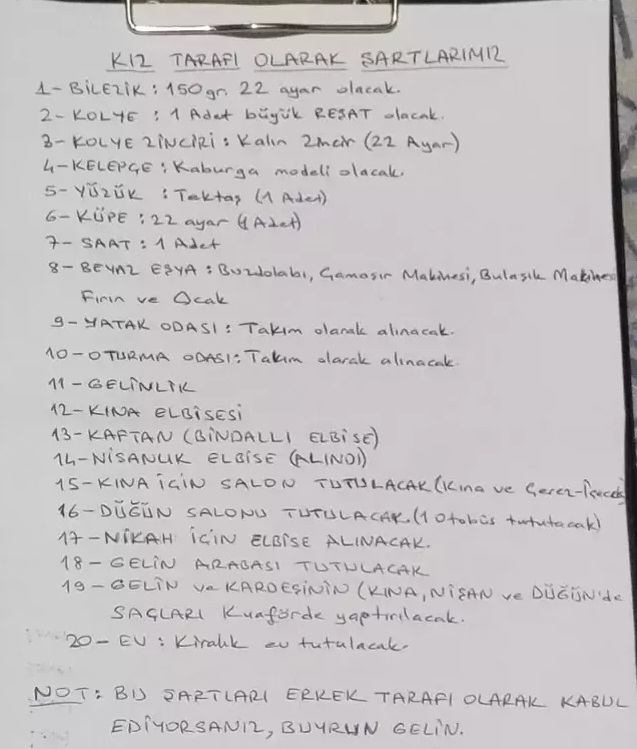 KIZ TARAFI OLARAK ŞARTLARIMIZ
1- BİLEZİK : 150 gr. 22 ayar olacak.
2- KOLYE : 1 Adet büyük REŞAT olacak.
3- KOLYE ZİNCİRİ : Kalın Zincir (22 Ayar)
4- KELEPÇE : Kaburga modeli olacak.
5- YÜZÜK : Tektaş (1 Adet)
6- KÜPE : 22 ayar (1 Adet)
7- SAAT : 1 Adet
8- BEYAZ EŞYA : Buzdolabı, Çamaşır Makinesi, Bulaşık Makinesi
Fırın ve Ocak
9- YATAK ODASI : Takım olarak alınacak.
10- OTURMA ODASI : Takım olarak alınacak.
11- GELİNLİK
12- KINA ELBİSESİ
13- KAFTAN (BİNDALLI ELBİSE)
14- NİŞANLIK ELBİSE (ALINDI)
15- KINA İÇİN SALON TUTULACAK (Kına ve Çerez-İçecek)
16- DÜĞÜN SALONU TUTULACAK. (1 Otobüs tutulacak)
17- NİKAH İÇİN ELBİSE ALINACAK.
18- GELİN ARABASI TUTULACAK
19- GELİN ve KARDEŞİNİN (KINA, NİŞAN ve DÜĞÜN'de
SAÇLARI Kuaförde yaptırılacak.
20- EV : Kiralık ev tutulacak.
NOT : BU ŞARTLARI ERKEK TARAFI OLARAK KABUL
EDİYORSANIZ, BUYRUN GELİN.